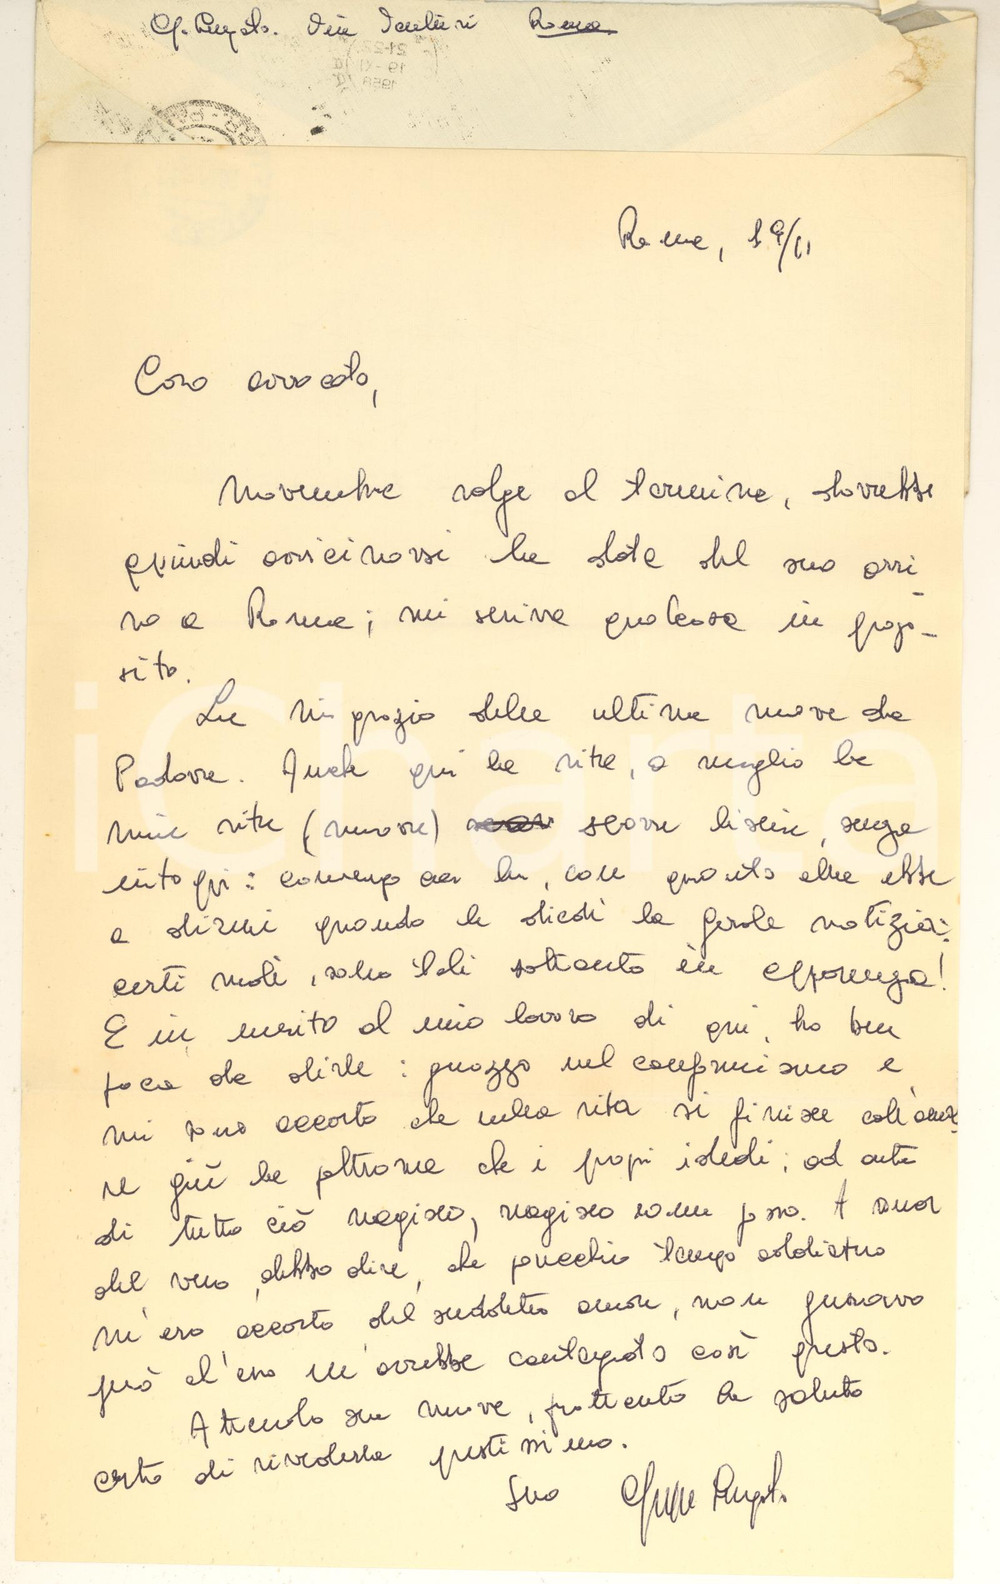 Roma
21-22
19-XI
1958
Roma, 19/11
Caro avvocato,
Novembre volge al termine, dovrebbe
quindi avvicinarsi la data del suo arri-
vo a Roma; mi scriva qualcosa in propo-
sito.
La ringrazio delle ultime nuove da
Padova. Anche qui la vita, o meglio la
mia vita (nuova) scorre liscia, senza
intoppi: convengo con lei, con quanto ella ebbe
a dirmi quando le diedi la ferale notizia:
certi modi, sono tali soltanto in apparenza!
E in merito al mio lavoro di qui, ho ben
poco da dirle:
mi sono accorto che nella vita si finisce coll'ama-
re più le poltrone che i propri ideali; ad onta
di tutto ciò reagisco, reagisco come posso. A onor
del vero, debbo dire, che parecchio tempo addietro
m'ero accorto del suddetto amore, non pensavo
però ch'esso m'avrebbe contagiato così presto.
Attendo sue nuove, frattanto La saluto
certo di rivederla prestissimo.
Suo
iCharta